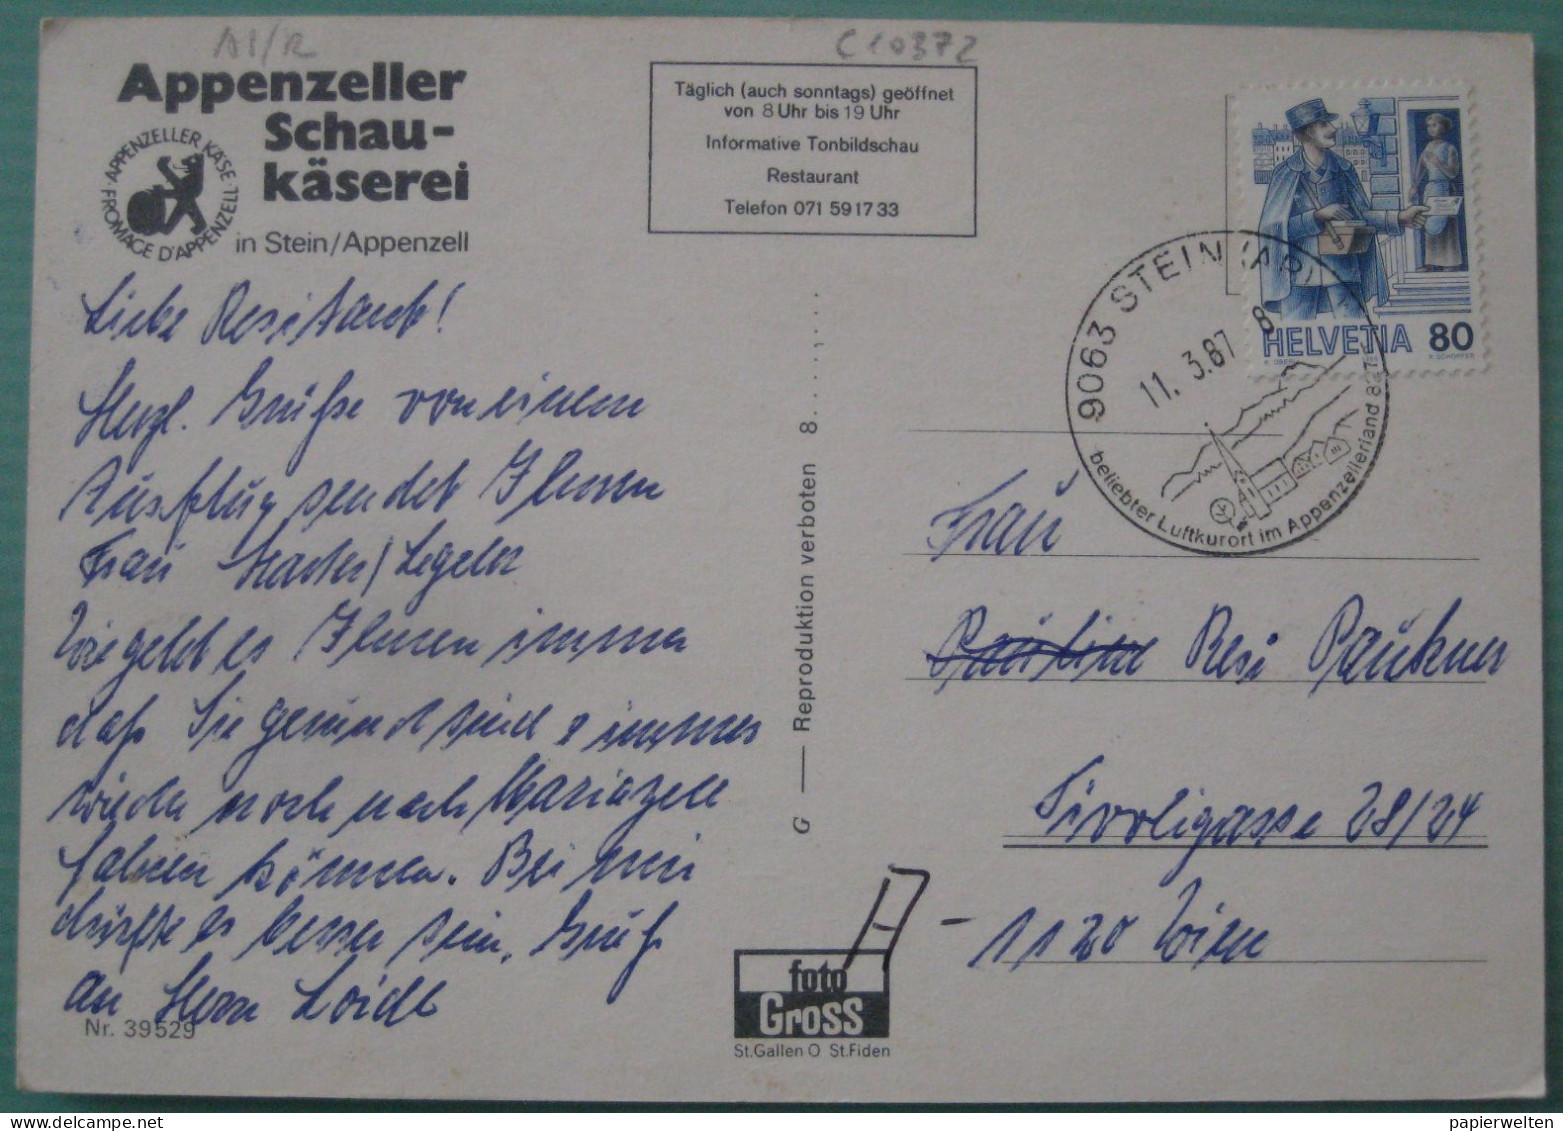 AI/R
C10372
Appenzeller
Schau-
käserei
in Stein/Appenzell
APPENZELLER KÄSE · FROMAGE D'APPENZELL ·
Täglich (auch sonntags) geöffnet
von 8 Uhr bis 19 Uhr
Informative Tonbildschau
Restaurant
Telefon 071 59 17 33
HELVETIA 80
9063 STEIN (AR)
11. 3.87 8
beliebter Luftkurort im Appenzellerland
Liebe Resi
Herzl. Grüße von einem
Ausflug sendet Ihnen
Frau
Wie geht es Ihnen immer
daß Sie gesund sind & immer
wieder noch nach Mariazell
fahren können. Bei mir
dürfte es besser sein. Gruß
an Herrn Loidl
Nr. 39529
G — Reproduktion verboten 8.....,...
foto
Gross
St.Gallen O St.Fiden
Frau
Resi Paukner
Tivoligasse 28/24
A - 1120 Wien
papierwelten